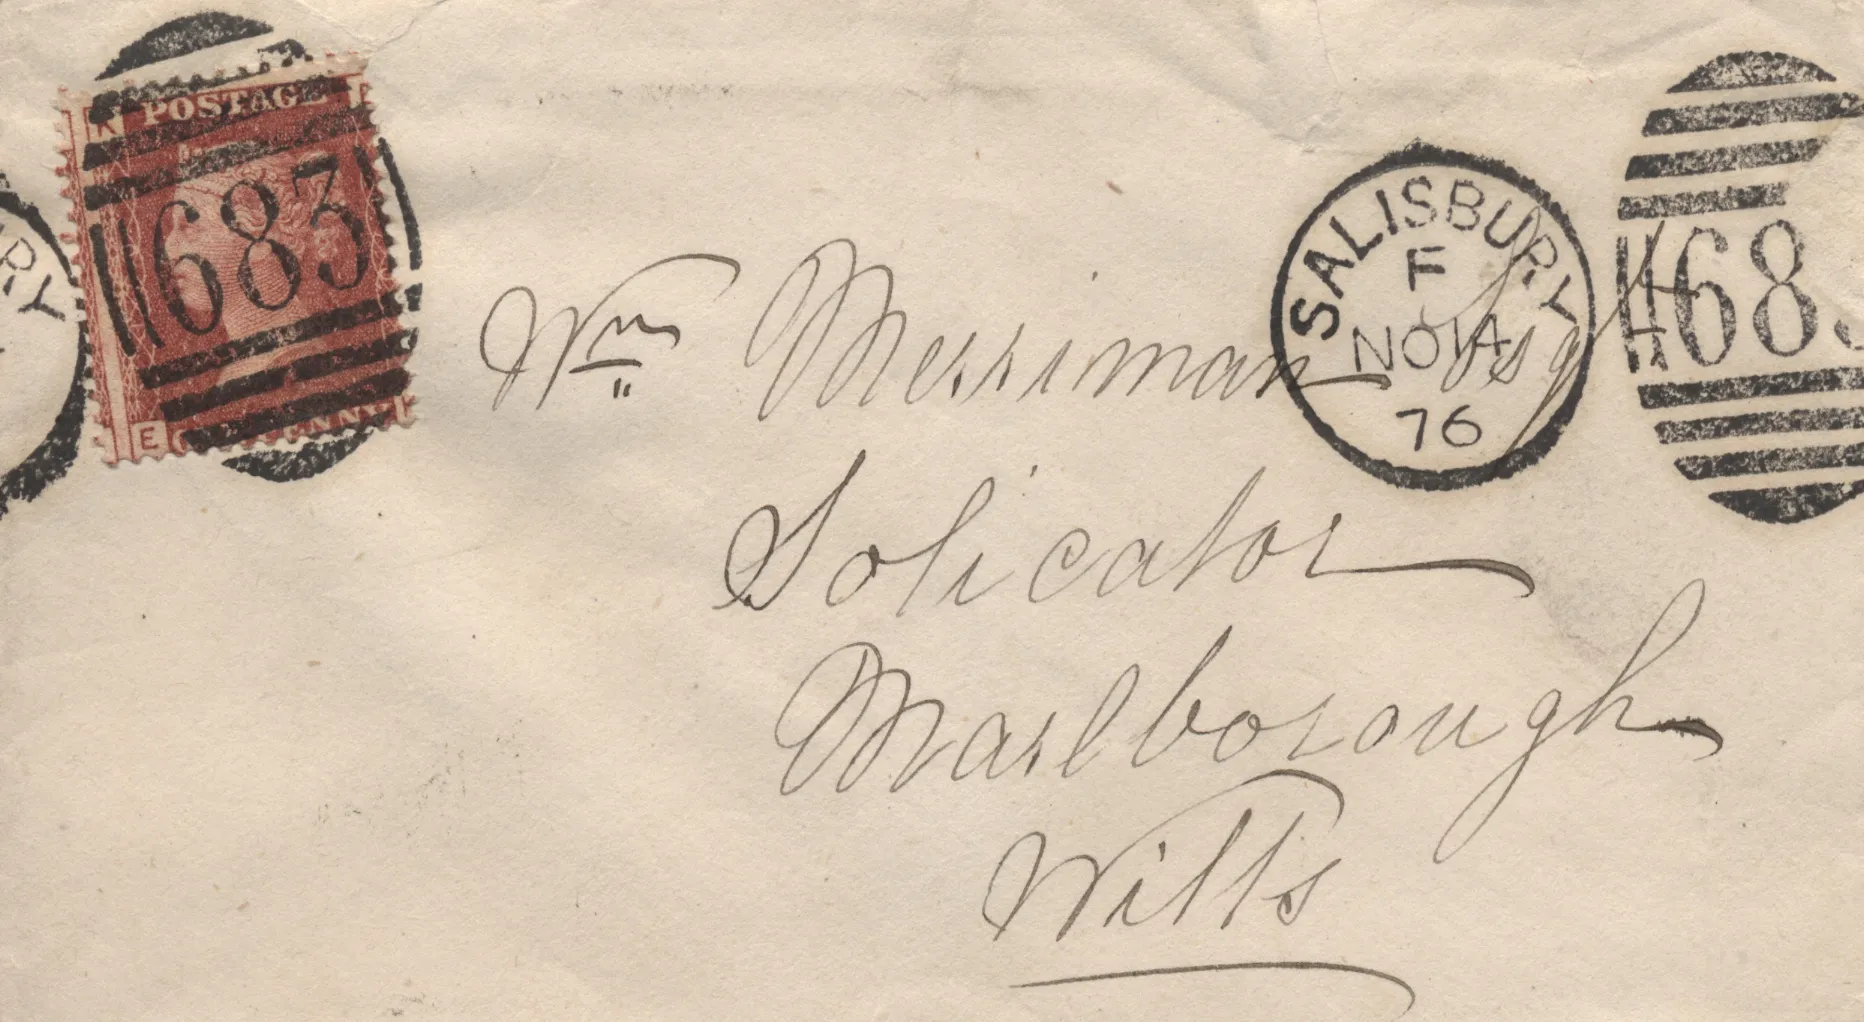 K POSTAGE
683
E PENNY
RY
SALISBURY
F
NO 14
76
683
Wm Merriman Esqr
Solicator
Marlborough
Wilts